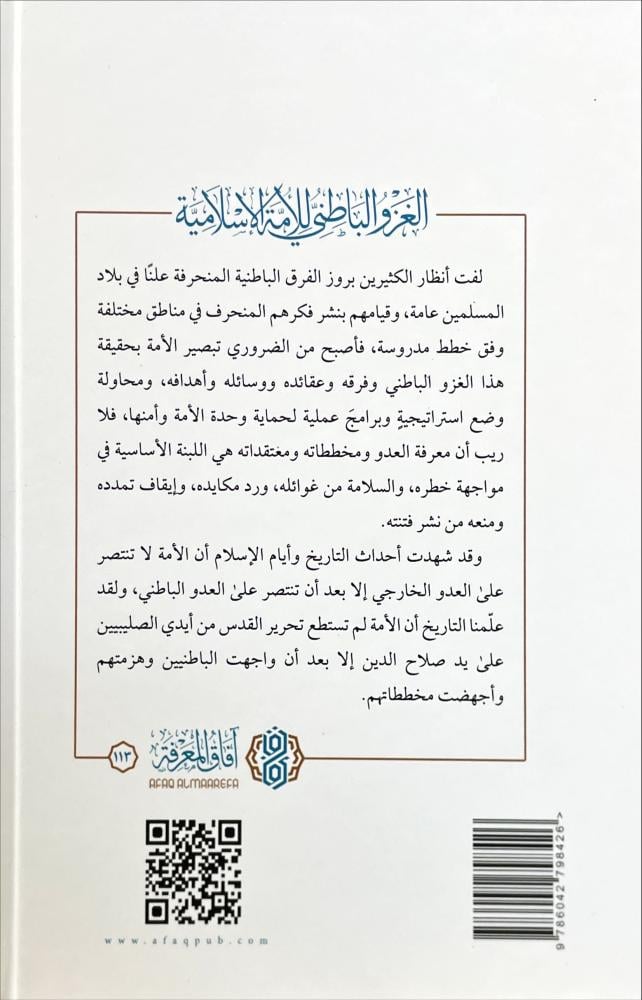 الغَزْو البَاطِنيُّ للأُمَّة الإِسْلَاميَّة
لفت أنظار الكثيرين بروز الفرق الباطنية المنحرفة علنًا في بلاد
المسلمين عامة، وقيامهم بنشر فكرهم المنحرف في مناطق مختلفة
وفق خطط مدروسة، فأصبح من الضروري تبصير الأمة بحقيقة
هذا الغزو الباطني وفرقه وعقائده ووسائله وأهدافه، ومحاولة
وضع استراتيجيةٍ وبرامجَ عملية لحماية وحدة الأمة وأمنها، فلا
ريب أن معرفة العدو ومخططاته ومعتقداته هي اللبنة الأساسية في
مواجهة خطره، والسلامة من غوائله، ورد مكايده، وإيقاف تمدده
ومنعه من نشر فتنته.
وقد شهدت أحداث التاريخ وأيام الإسلام أن الأمة لا تنتصر
علىٰ العدو الخارجي إلا بعد أن تنتصر علىٰ العدو الباطني، ولقد
علّمنا التاريخ أن الأمة لم تستطع تحرير القدس من أيدي الصليبيين
علىٰ يد صلاح الدين إلا بعد أن واجهت الباطنيين وهزمتهم
وأجهضت مخططاتهم.
آفاق المعرفة
١١٣
AFAQ ALMAAREFA
www.afaqpub.com
9 786042 798426 >